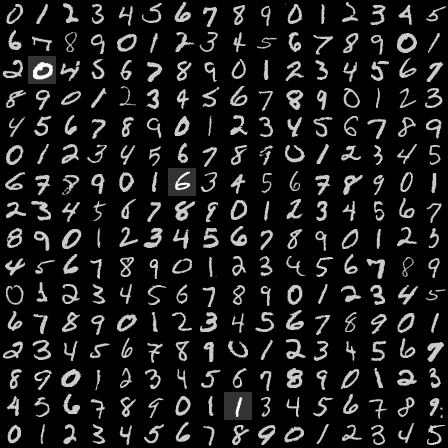 0 1 2 3 4 5 6 7 8 9 0 1 2 3 4 5
6 7 8 9 0 1 2 3 4 5 6 7 8 9 0 1
2 0 4 5 6 7 8 9 0 1 2 3 4 5 6 7
8 9 0 1 2 3 4 5 6 7 8 9 0 1 2 3
4 5 6 7 8 9 0 1 2 3 4 5 6 7 8 9
0 1 2 3 4 5 6 7 8 9 0 1 2 3 4 5
6 7 8 9 0 1 6 3 4 5 6 7 8 9 0 1
2 3 4 5 6 7 8 9 0 1 2 3 4 5 6 7
8 9 0 1 2 3 4 5 6 7 8 9 0 1 2 3
4 5 6 7 8 9 0 1 2 3 4 5 6 7 8 9
0 1 2 3 4 5 6 7 8 9 0 1 2 3 4 5
6 7 8 9 0 1 2 3 4 5 6 7 8 9 0 1
2 3 4 5 6 7 8 9 0 1 2 3 4 5 6 7
8 9 0 1 2 3 4 5 6 7 8 9 0 1 2 3
4 5 6 7 8 9 0 1 1 3 4 5 6 7 8 9
0 1 2 3 4 5 6 7 8 9 0 1 2 3 4 5